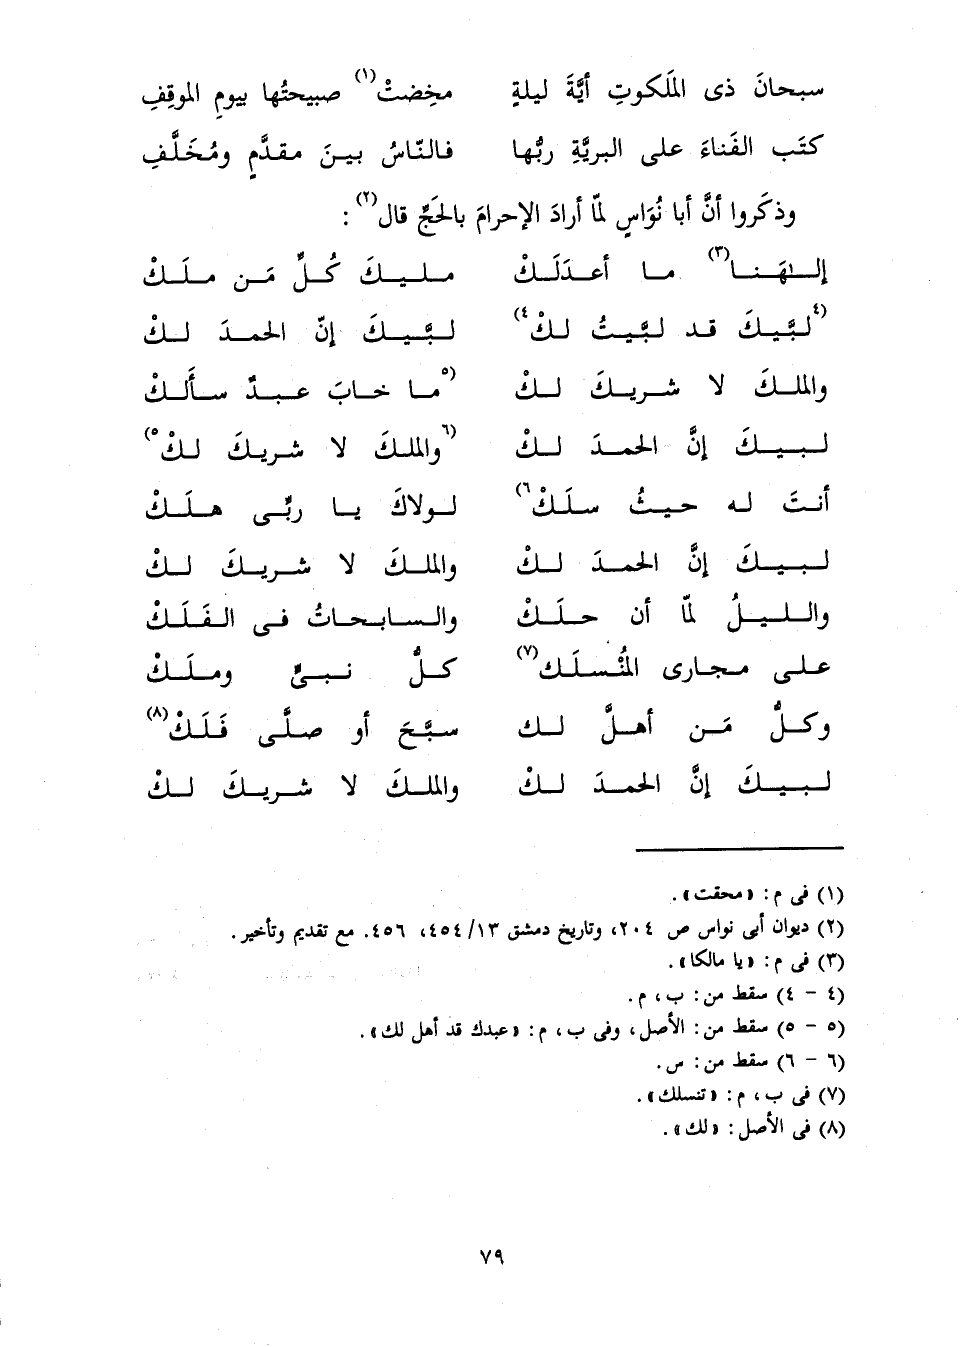 سبحانَ ذى المَلَكوتِ أيَّةَ ليلةٍ مخِضتْ(١) صبيحتُها بيومِ الموقِفِ
كتَب الفَناءَ على البريَّةِ ربُّها فالنّاسُ بينَ مقدَّمٍ ومُخَلَّفِ
وذكَروا أنَّ أبا نُوَاسٍ لمّا أرادَ الإحرامَ بالحَجِّ قال(٢) :
إلـٰهَنا(٣) ما أعدَلَكْ مليكَ كُلِّ مَن ملَكْ
(٤لبَّيكَ قد لبَّيتُ لكْ٤) لبَّيكَ إنّ الحمدَ لكْ
والملكَ لا شريكَ لكْ (٥ما خابَ عبدٌ سألَكْ
لبيكَ إنَّ الحمدَ لكْ (٦والملكَ لا شريكَ لكْ٥)
أنتَ له حيثُ سلَكْ٦) لولاكَ يا ربِّى هلَكْ
لبيكَ إنَّ الحمدَ لكْ والملكَ لا شريكَ لكْ
والليلُ لمّا أن حلَكْ والسابحاتُ فى الفَلَكْ
على مجارى المُنْسلَك(٧) كلُّ نبىٍّ وملَكْ
وكلُّ مَن أهلَّ لك سبَّحَ أو صلَّى فَلَكْ(٨)
لبيكَ إنَّ الحمدَ لكْ والملكَ لا شريكَ لكْ
(١) فى م : «محقت» .
(٢) ديوان أبى نواس ص ٢٠٤، وتاريخ دمشق ١٣/ ٤٥٤، ٤٥٦. مع تقديم وتأخير .
(٣) فى م : «يا مالكا» .
(٤ - ٤) سقط من : ب ، م .
(٥ - ٥) سقط من : الأصل ، وفى ب ، م : «عبدك قد أهل لك» .
(٦ - ٦) سقط من : س .
(٧) فى ب ، م : «تنسلك» .
(٨) فى الأصل : «لك» .
٧٩